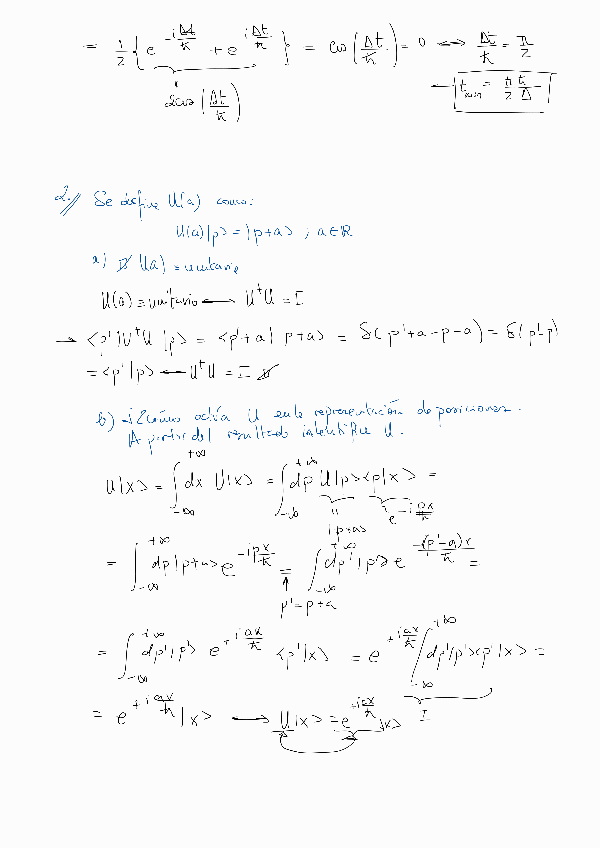 = 1/2 { e^{-iΔt/ħ} + e^{iΔt/ħ} } = cos(Δt/ħ) = 0 ⟷ Δt/ħ = π/2
2cos(Δt/ħ)
← t = π/2 ħ/Δ
2.// Se define U(a) como:
U(a)|p> = |p+a> ; a∈ℝ
a) U(a) = unitario
U(a) = unitario ⟷ U†U = I
→ <p'|U†U|p> = <p'+a|p+a> = δ(p'+a-p-a) = δ(p'-p)
= <p'|p> ⟵ U†U = I
b) ¿Cómo actúa U en la representación de posiciones.
A partir del resultado identifique U.
U|x> = ∫_{-∞}^{+∞} dx U|x> = ∫_{-∞}^{+∞} dp U|p><p|x> =
|p+a> e^{-ipx/ħ}
= ∫_{-∞}^{+∞} dp|p+a> e^{-ipx/ħ} = ∫_{-∞}^{+∞} dp'|p'> e^{-i(p'-a)x/ħ} =
p' = p+a
= ∫_{-∞}^{+∞} dp'|p'> e^{+iax/ħ} <p'|x> = e^{+iax/ħ} ∫_{-∞}^{+∞} dp'|p'><p'|x> =
= e^{+iax/ħ} |x> ⟷ U|x> = e^{+iax/ħ} |x> I